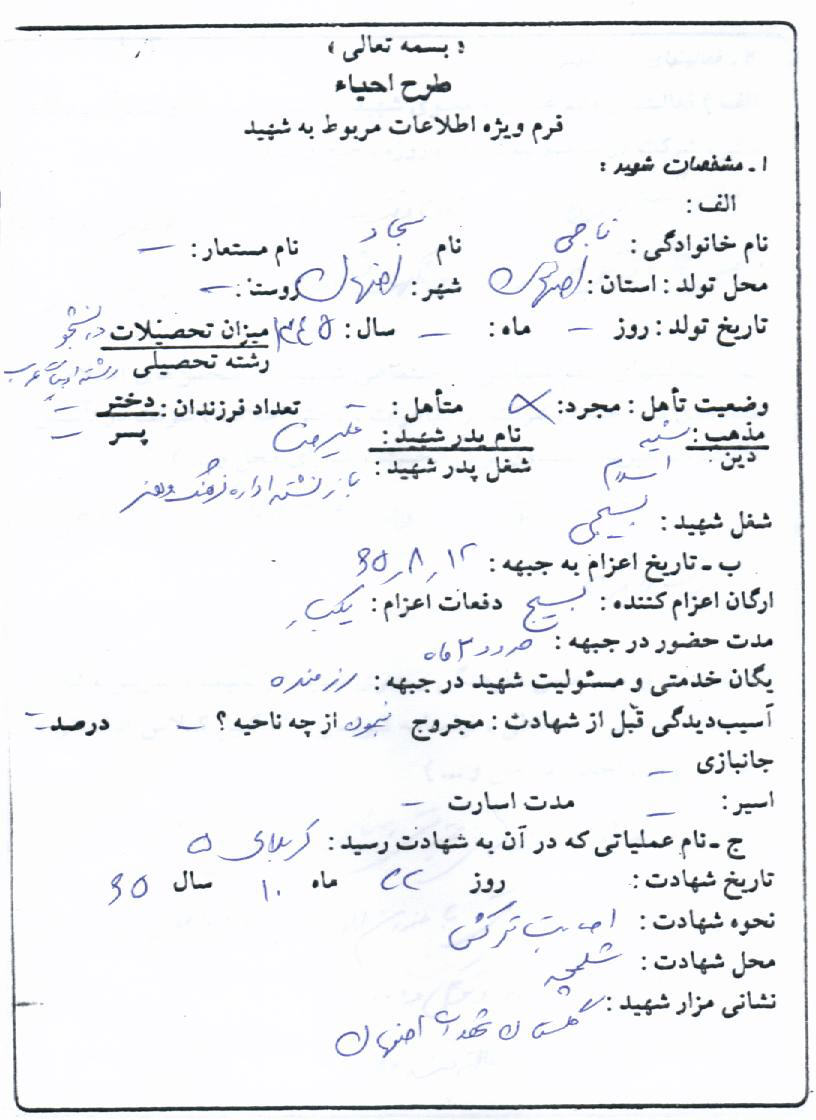 « بسمه تعالی »
طرح احیاء
فرم ویژه اطلاعات مربوط به شهید
۱ـ مشخصات شهید :
الف :
نام خانوادگی : ناجی نام سجاد نام مستعار : –
محل تولد : استان : اصفهان شهر : اصفهان روستا : –
تاریخ تولد : روز – ماه : – سال : ۱۳۴۵ میزان تحصیلات دانشجو
رشته تحصیلی رشته ادبیات عرب
وضعیت تأهل : مجرد : × متأهل : تعداد فرزندان : دختر –
مذهب : شیعه نام پدر شهید : پسر –
دین : اسلام شغل پدر شهید : بازنشسته اداره فرهنگ و هنر
شغل شهید : بسیجی
ب ـ تاریخ اعزام به جبهه : ۶۵٫۸٫۱۲
ارگان اعزام کننده : بسیج دفعات اعزام : یکبار
مدت حضور در جبهه : حدود ۲ ماه
یگان خدمتی و مسئولیت شهید در جبهه : رزمنده
آسیب‌دیدگی قبل از شهادت : مجروح نبوده از چه ناحیه ؟ – درصد –
جانبازی –
اسیر : – مدت اسارت –
ج ـ نام عملیاتی که در آن به شهادت رسید : کربلای ۵
تاریخ شهادت : روز ۲۲ ماه ۱۰ سال ۶۵
نحوه شهادت : اصابت ترکش
محل شهادت : شلمچه
نشانی مزار شهید : گلستان شهدای اصفهان